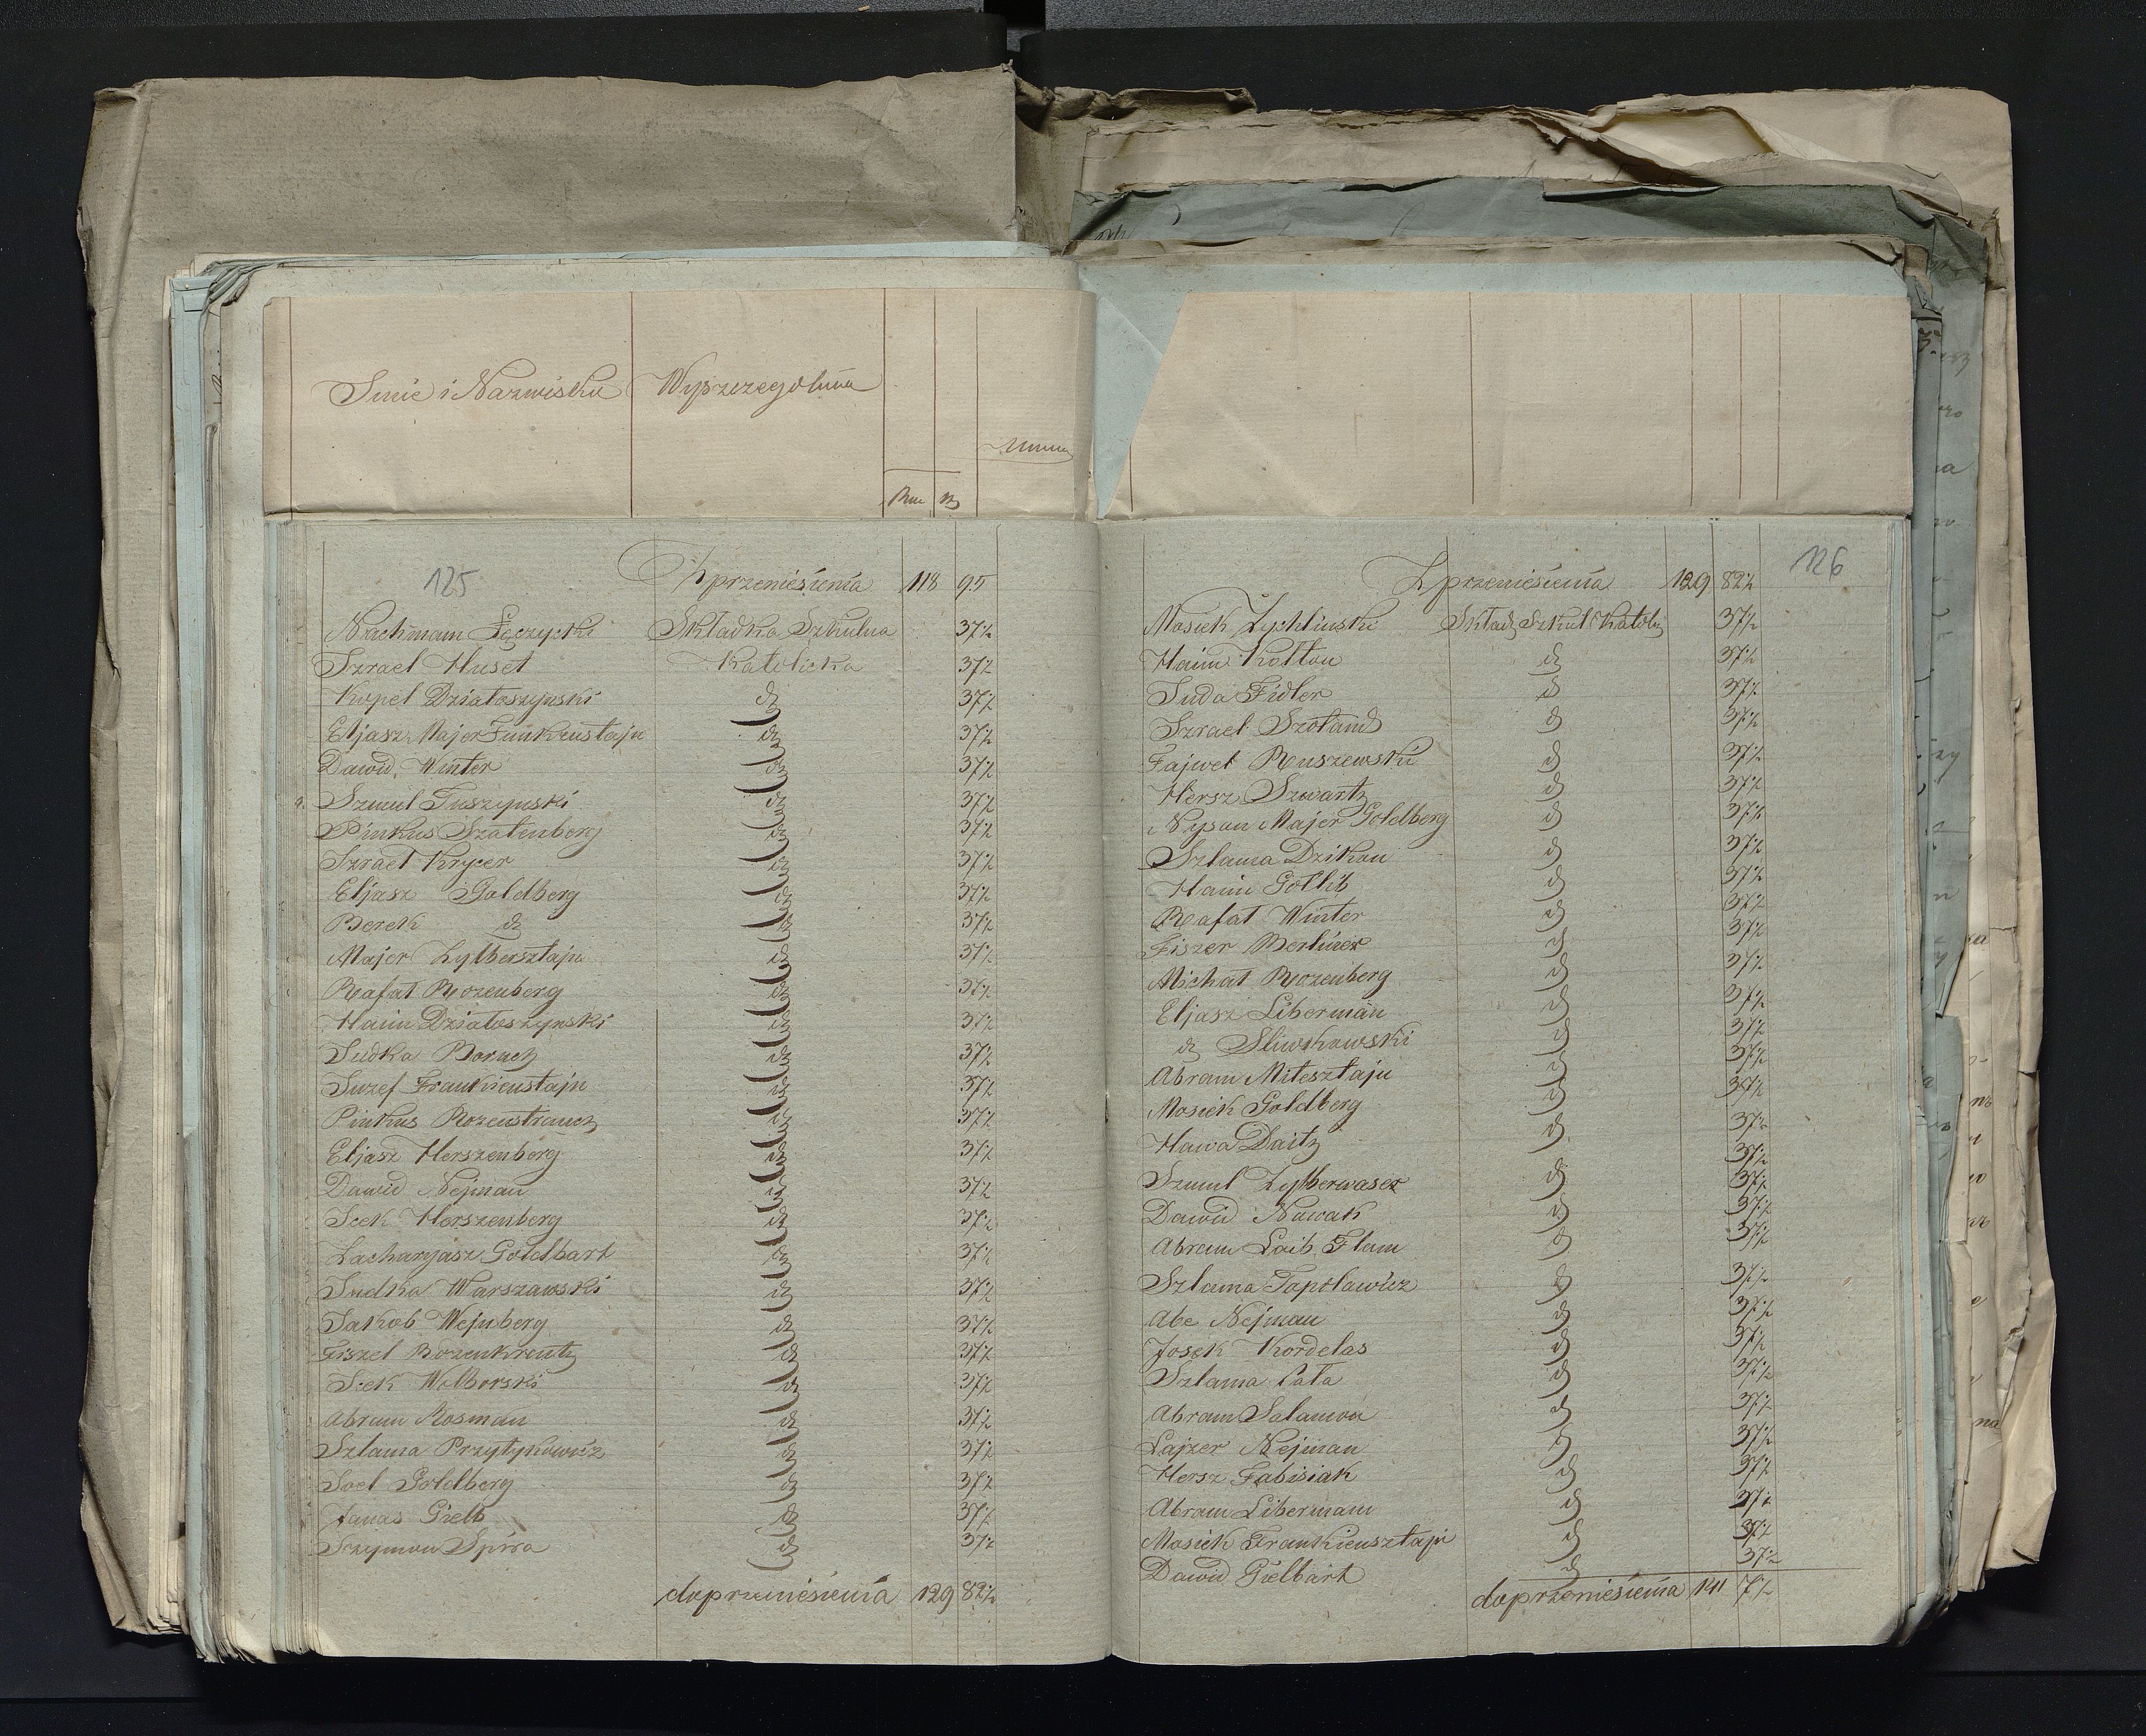 Imie i Nazwisko Wyszczegolnia
Rsr k
125
Z przeniesienia 118 95
Nachmam Łęczycki Składka Szkulna 37½
Izrael Huset Katolicka 37½
Kopel Działoszynski d 37½
Eljasz Majer Funkensztajn d 37½
Dawid Winter d 37½
Szmul Tuszynski d 37½
Pinkus Szatenberg d 37½
Izrael Krycer d 37½
Eljasz Goldberg d 37½
Berek d d 37½
Majer Zylbersztajn d 37½
Rafał Rozenberg d 37½
Haim Działoszynski d 37½
Judka Boruch d 37½
Juzef Frankiensztajn d 37½
Pinkus Rozenstrauch d 37½
Eljasz Herszenberg d 37½
Dawid Nejman d 37½
Icek Herszenberg d 37½
Zacharyasz Goldbart d 37½
Judka Warszawski d 37½
Jakob Wejnberg d 37½
Fiszel Rozenkrantz d 37½
Icek Wolborski d 37½
Abram Rosman d 37½
Szlama Przytykowicz d 37½
Joel Goldberg d 37½
Janas Gielb d 37½
Szymon Spiro d 37½
do przeniesienia 129 82½
126
Z przeniesienia 129 82½
Mosiek Zychlinski Skład Szkul Katoli 37½
Haim Kołtan d 37½
Juda Fidler d 37½
Izrael Szoland d 37½
Fajwel Ruszewski d 37½
Hersz Szwartz d 37½
Nysan Majer Goldberg d 37½
Szlama Dzikan d 37½
Haim Gotlib d 37½
Rafał Winter d 37½
Fiszer Berliner d 37½
Michał Rozenberg d 37½
Eljasz Liberman d 37½
d Sliwkowski d 37½
Abram Milesztajn d 37½
Mosiek Goldberg d 37½
Hawa Daitz d 37½
Szmul Zylberwaser d 37½
Dawid Nowak d 37½
Abram Laib Flam d 37½
Szlama Tapolawicz d 37½
Abe Nejman d 37½
Josek Kordelas d 37½
Szlama Pala d 37½
Abram Salamon d 37½
Lajzer Nejman d 37½
Hersz Fabisiak d 37½
Abram Libermam d 37½
Mosiek Frankiensztajn d 37½
Dawid Gielbart d 37½
do przeniesienia 141 7½